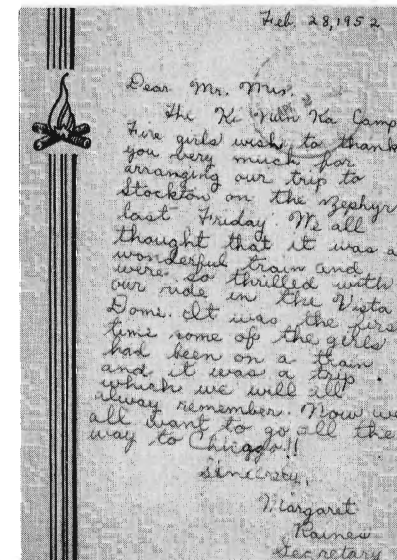 Feb 28, 1952
Dear Mr. Mrs.
The Ki Yum Ka Camp
Fire girls wish to thank
you very much for
arranging our trip to
Stockton on the Zephyr
last Friday. We all
thought that it was a
wonderful train and
were so thrilled with
our ride in the Vista
Dome. It was the firs
time some of the girls
had been on a train
and it was a trip
which we will all
alway remember. Now we
all want to go all the
way to Chicago!!
Sincerely,
Margaret
Raines
Secretary